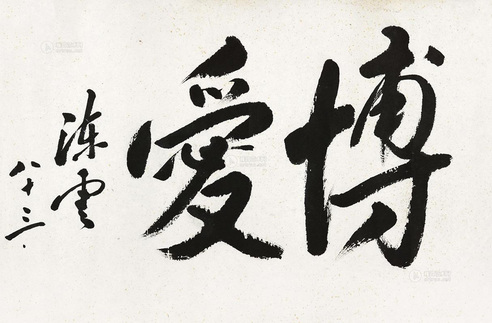 博愛
陈雲
八十三